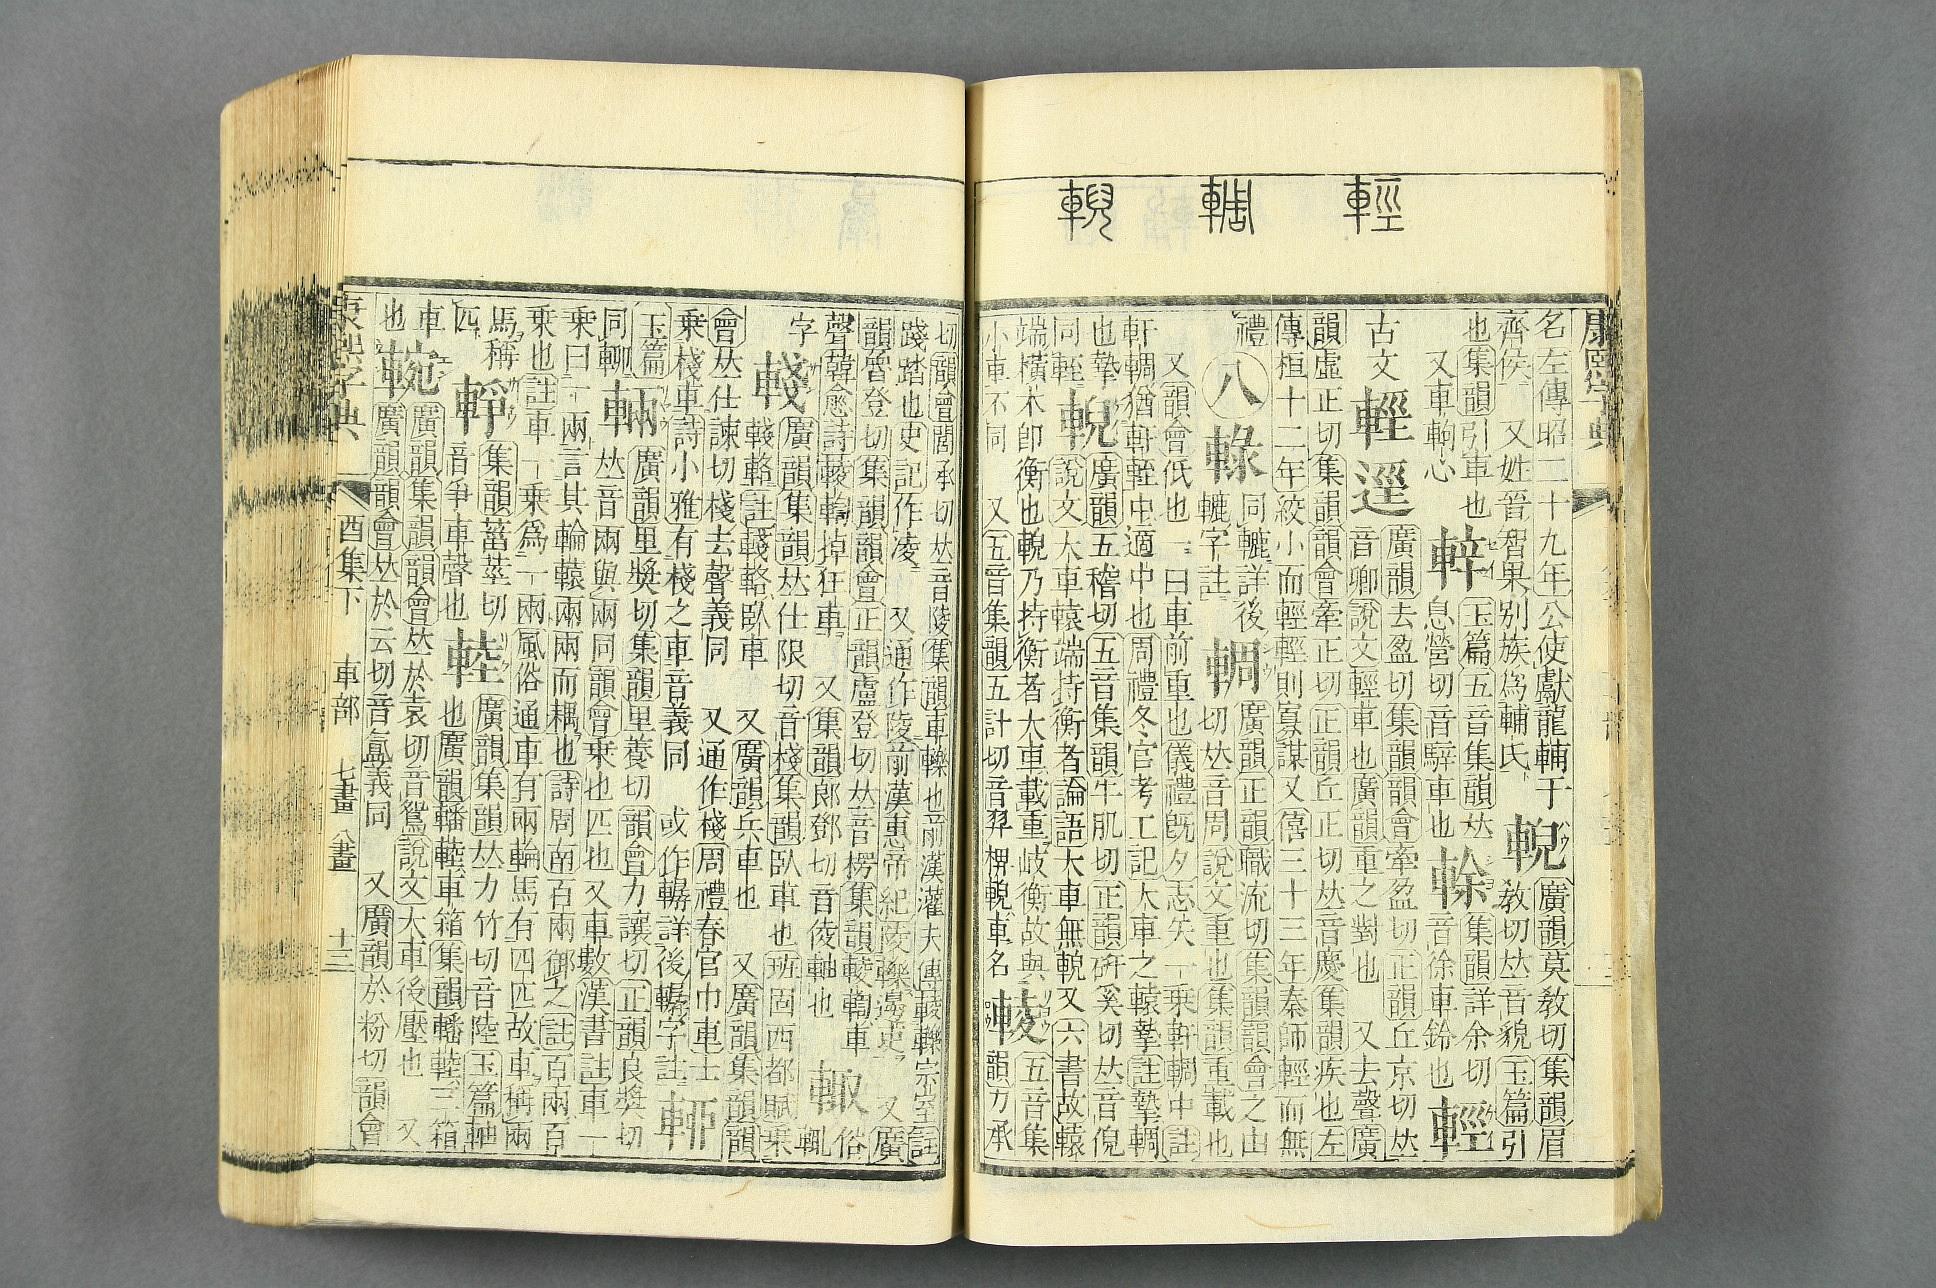 輕 輖 輗
康熙字典
名左傳昭二十九年公使獻龍輔于
齊侯 又姓晉智果別族爲輔氏
輗
廣韻莫教切集韻眉
教切𠀤音貌玉篇引
也集韻引車也
又車軥心
辡
玉篇五音集韻𠀤
息營切音騂車也
䡣
集韻詳余切
音徐車鈴也
輕
古文
輕 逕
廣韻去盈切集韻韻會牽盈切正韻丘京切𠀤
音卿說文輕車也廣韻重之對也 又去聲廣
韻虛正切集韻韻會牽正切正韻丘正切𠀤音慶集韻疾也左
傳桓十二年絞小而輕輕則寡謀又僖三十三年秦師輕而無
禮
八
䡵
同轆詳後
轆字註
輖
廣韻正韻職流切集韻韻會之由
切𠀤音周說文重也集韻重載也
又韻會低也一曰車前重也儀禮旣夕志矢一乗軒輖中註
軒輖猶軒輊中適中也周禮冬官考工記大車之轅摯註摯輖
也摯
同輊
輗
廣韻五稽切五音集韻牛肌切正韻硏奚切𠀤音倪
說文大車轅端持衡者論語大車無輗又六書故轅
端橫木卽衡也輗乃持衡者大車載重故岐衡故與
小車不同 又五音集韻五計切音羿椑輗車名
輘
五音集
韻力承
切韻會閭承切𠀤音陵集韻車轢也前漢灌夫傳輘轢宗室註
踐踏也史記作凌 又通作陵前漢惠帝紀陵轢邊吏 又廣
韻魯登切集韻韻會正韻盧登切𠀤音楞集韻輘輷車
聲韓愈詩輘輷掉狂車 又集韻郎鄧切音倰軸也
輙
俗
輒
字
輚
廣韻集韻𠀤仕限切音棧集韻臥車也班固西都賦乗
輚輅註輚輅臥車 又廣韻兵車也 又廣韻集韻韻
會𠀤仕諫切棧去聲義同 又通作棧周禮春官巾車士
乗棧車詩小雅有棧之車音義同 或作轏詳後轏字註
輛
玉篇
同輛
輛
廣韻里奬切集韻里養切韻會力讓切正韻良奬切
𠀤音兩與兩同韻會乗也匹也又車數漢書註車一
乗曰一兩言其輪轅兩兩而耦也詩周南百兩御之註百兩百
乗也註車一乗爲一兩風俗通車有兩輪馬有四匹故車稱兩
馬稱
匹
䡝
集韻蓄莖切
音爭車聲也
䡜
廣韻集韻𠀤力竹切音陸玉篇軸
也廣韻轓䡜車箱集韻轓䡜三箱
車
也
䡝
廣韻集韻韻會𠀤於袁切音鴛說文大車後壓也 又
廣韻韻會𠀤於云切音氳義同 又廣韻於粉切韻會
康熙字典
酉集下 車部 七畫 八畫 十三